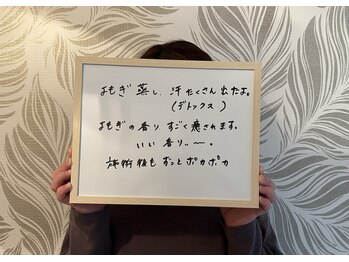 よもぎ蒸し、汗たくさん出たよ。
(デトックス)
よもぎの香りすごく癒されます。
いい香り〜。
施術後もずっとポカポカ